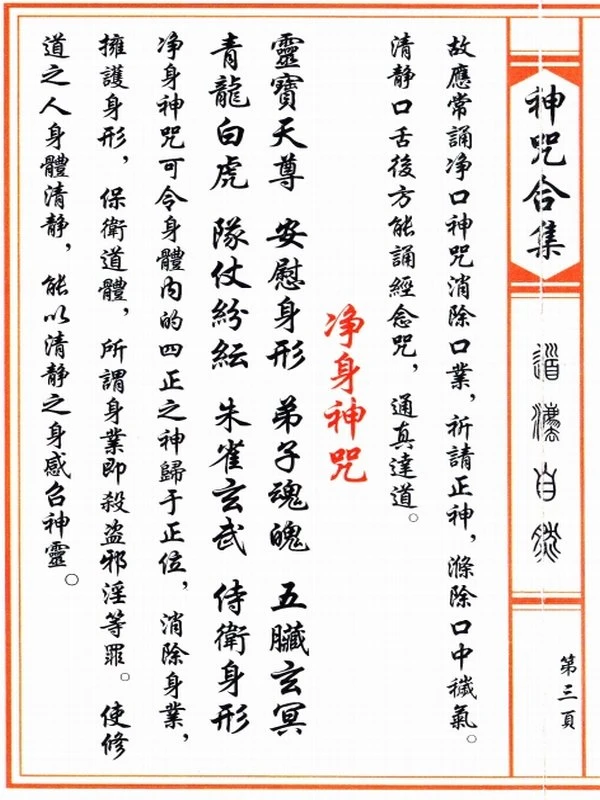 神咒合集
道濃自然
第三頁
故應常誦净口神咒消除口業，祈請正神，滌除口中穢氣。
清静口舌後方能誦經念咒，通真達道。
净身神咒
靈寶天尊 安慰身形 弟子魂魄 五臟玄冥
青龍白虎 隊仗紛紜 朱雀玄武 侍衛身形
净身神咒可令身體內的四正之神歸于正位，消除身業，
擁護身形，保衛道體，所謂身業即殺盗邪淫等罪。使修
道之人身體清静，能以清静之身感召神靈。